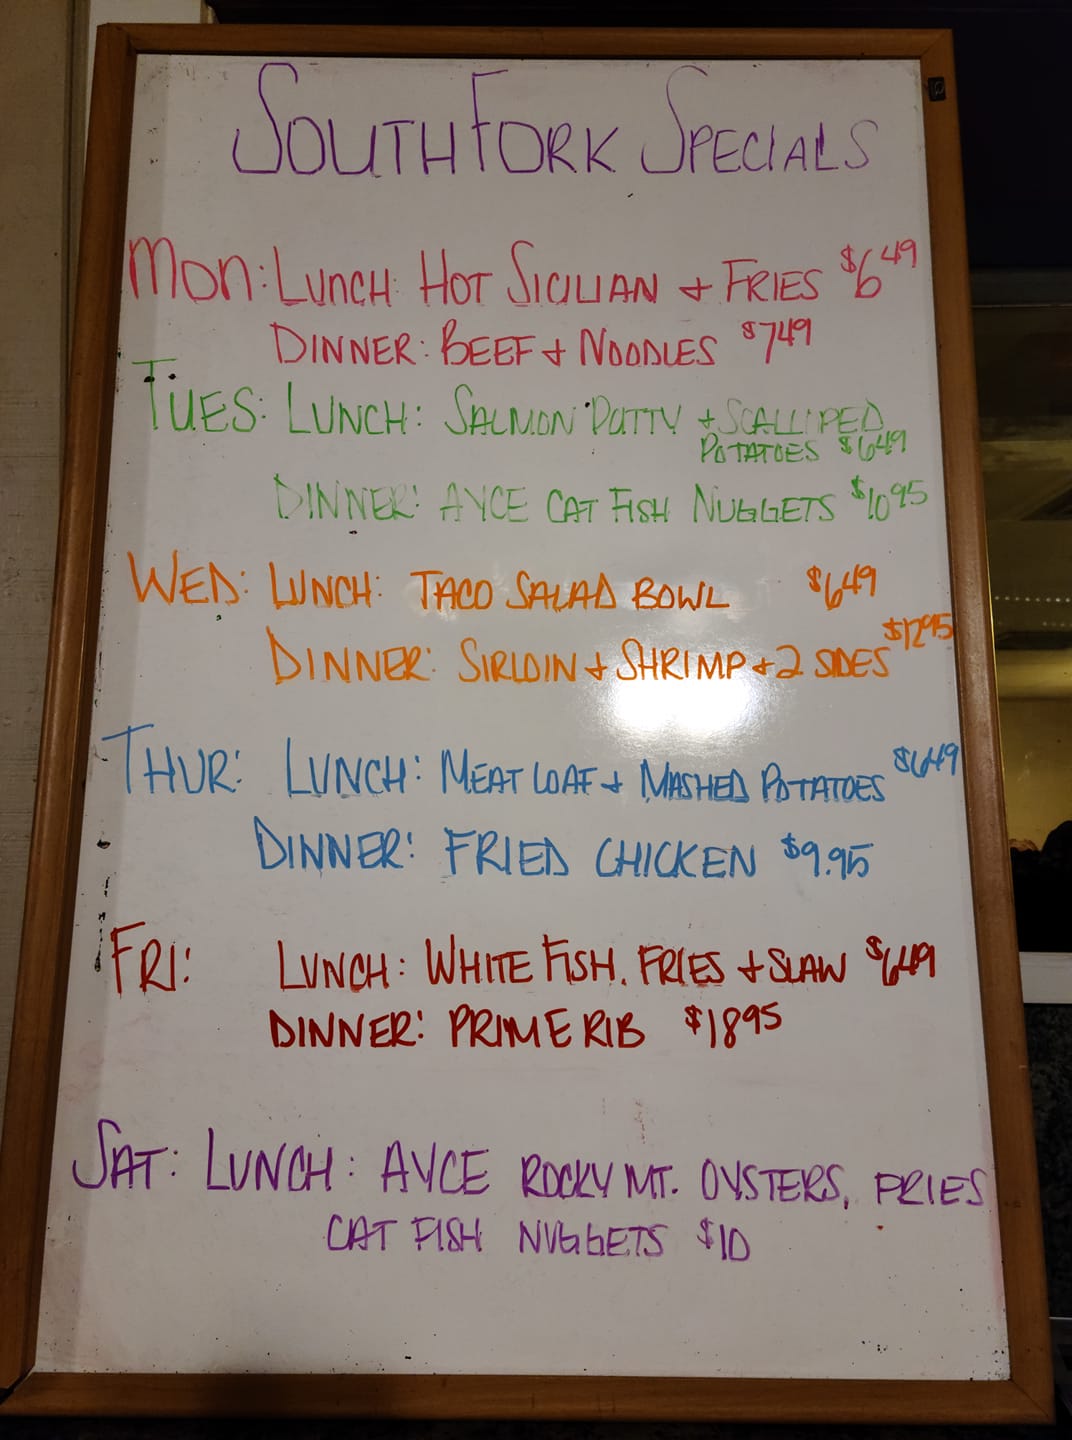 SOUTHFORK SPECIALS
MON: LUNCH: HOT SICILIAN + FRIES $6 49
DINNER: BEEF + NOODLES $7 49
TUES: LUNCH: SALMON PATTY + SCALLIPED
POTATOES $6 49
DINNER: AYCE CAT FISH NUGGETS $10 95
WED: LUNCH: TACO SALAD BOWL $6 49
DINNER: SIRLOIN + SHRIMP + 2 SIDES $12 95
THUR: LUNCH: MEAT LOAF + MASHED POTATOES $6 49
DINNER: FRIED CHICKEN $9.95
FRI: LUNCH: WHITE FISH, FRIES + SLAW $6 49
DINNER: PRIME RIB $18 95
SAT: LUNCH: AYCE ROCKY MT. OYSTERS, FRIES
CAT FISH NUGGETS $10